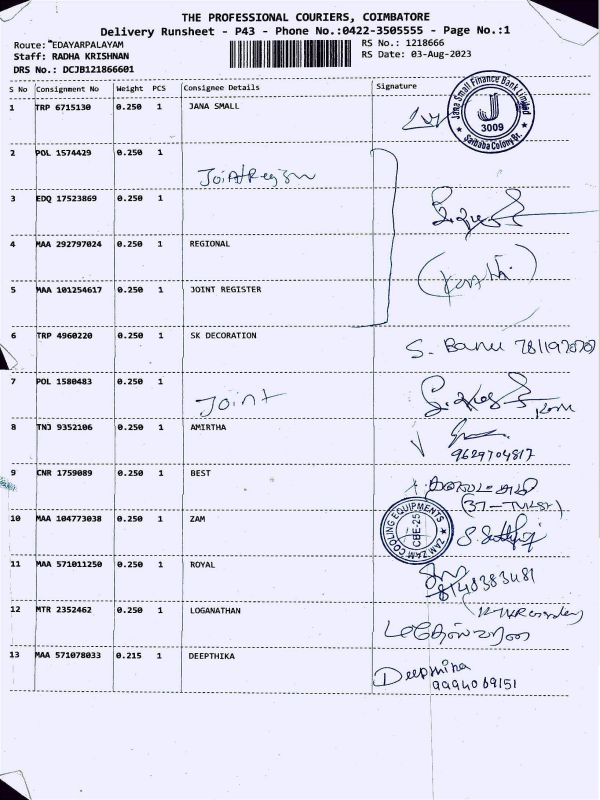 THE PROFESSIONAL COURIERS, COIMBATORE
Delivery Runsheet - P43 - Phone No.:0422-3505555 - Page No.:1
Route: EDAYARPALAYAM
RS No.: 1218666
Staff: RADHA KRISHNAN
RS Date: 03-Aug-2023
DRS No.: DCJB121866601
S No Consignment No Weight PCS Consignee Details Signature
1 TRP 6715130 0.250 1 JANA SMALL
Jana Small Finance Bank Limited
J
3009
Saibaba Colony Br.
2 POL 1574429 0.250 1
Joint Region
3 EDQ 17523869 0.250 1
4 MAA 292797024 0.250 1 REGIONAL
5 MAA 101254617 0.250 1 JOINT REGISTER
6 TRP 4960220 0.250 1 SK DECORATION
S. Banu
7 POL 1580483 0.250 1
Joint
8 TNJ 9352106 0.250 1 AMIRTHA
9629704817
9 CNR 1759089 0.250 1 BEST
10 MAA 104773038 0.250 1 ZAM
ZAM ZAM COOLING EQUIPMENTS
CBE-25
11 MAA 571011250 0.250 1 ROYAL
8148383481
12 MTR 2352462 0.250 1 LOGANATHAN
13 MAA 571078033 0.215 1 DEEPTHIKA
Deepthika
9994069151